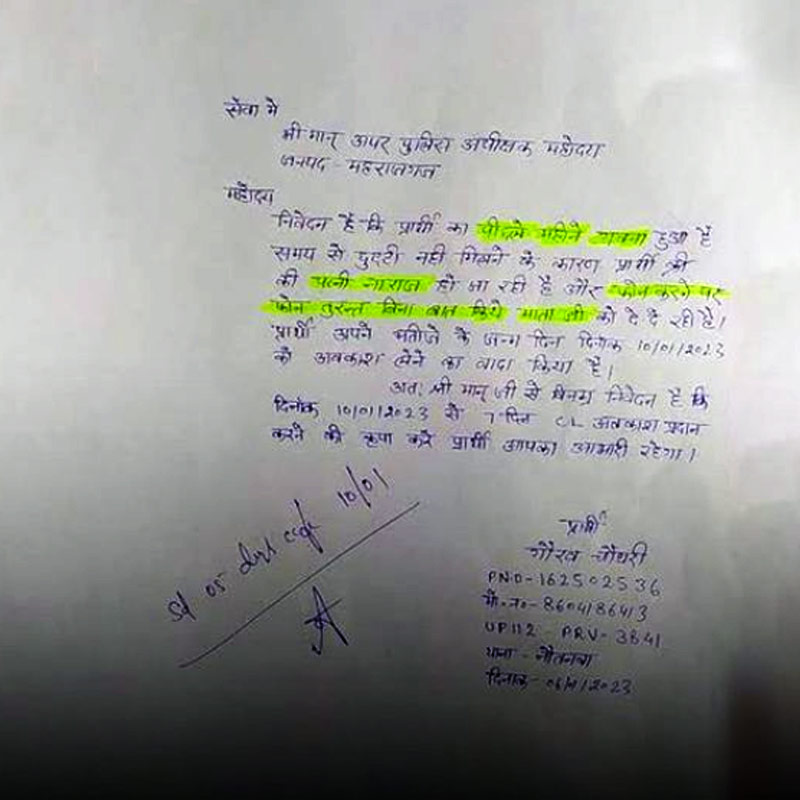 सेवा मे
श्री मान् अपर पुलिस अधीक्षक महोदय
जनपद - महराजगंज
महोदय
निवेदन है कि प्रार्थी का पीछले महिने हुआ है
समय से छुट्टी नही मिलने के कारण प्रार्थी श्री
की पत्नी नाराज हो जा रही है और फोन करने पर
फोन तुरन्त बिना बात किये माता जी को दे दे रही है।
प्रार्थी अपने भतीजे के जन्म दिन दिनांक 10/01/2023
को अवकाश लेने का वादा किया है।
अतः श्री मान् जी से विनम्र निवेदन है कि
दिनांक 10/01/2023 से 7 दिन CL अवकाश प्रदान
करने की कृपा करे प्रार्थी आपका आभारी रहेगा।
05 10/01
प्रार्थी
गौरव चौधरी
PNO - 162502536
मो. न० - 8604186413
UP112 - PRV - 3841
थाना - नौतनवा
दिनांक - /2023